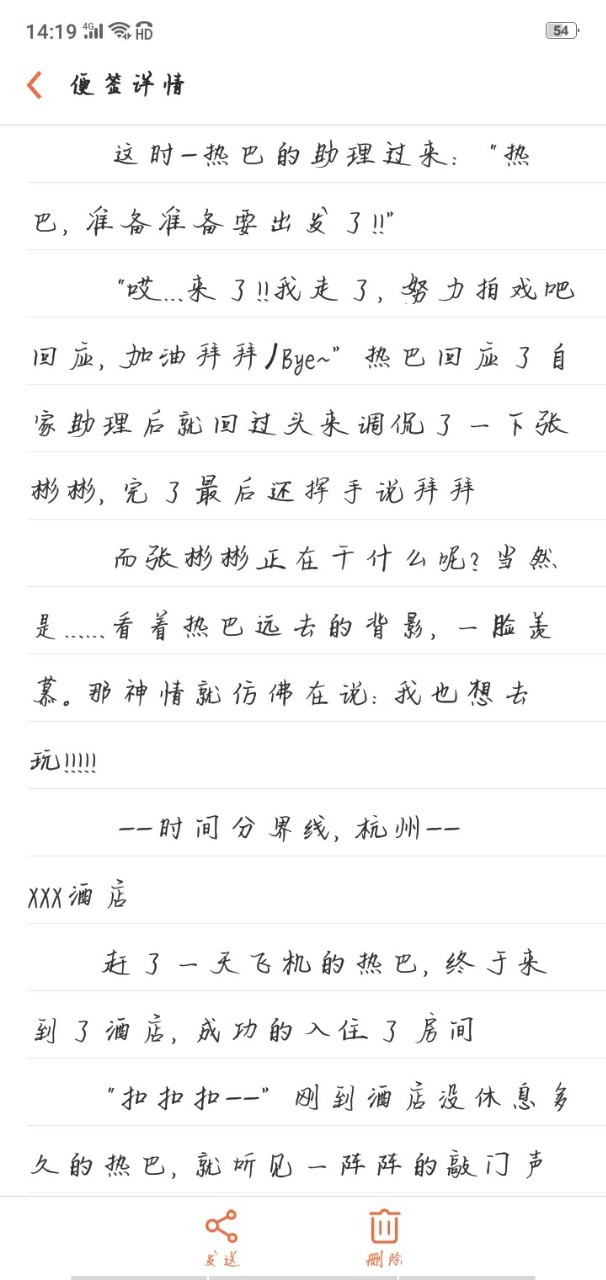 14:19 4G HD 54
便签详情
这时一热巴的助理过来："热
巴,准备准备要出发了!!"
"哎...来了!!我走了,努力拍戏吧
回应,加油拜拜/Bye~"热巴回应了自
家助理后就回过头来调侃了一下张
彬彬,完了最后还挥手说拜拜
而张彬彬正在干什么呢?当然
是......看着热巴远去的背影,一脸羡
慕。那神情就仿佛在说:我也想去
玩!!!!!
--时间分界线,杭州--
XXX酒店
赶了一天飞机的热巴,终于来
到了酒店,成功的入住了房间
"扣扣扣--"刚到酒店没休息多
久的热巴,就听见一阵阵的敲门声
发送
删除